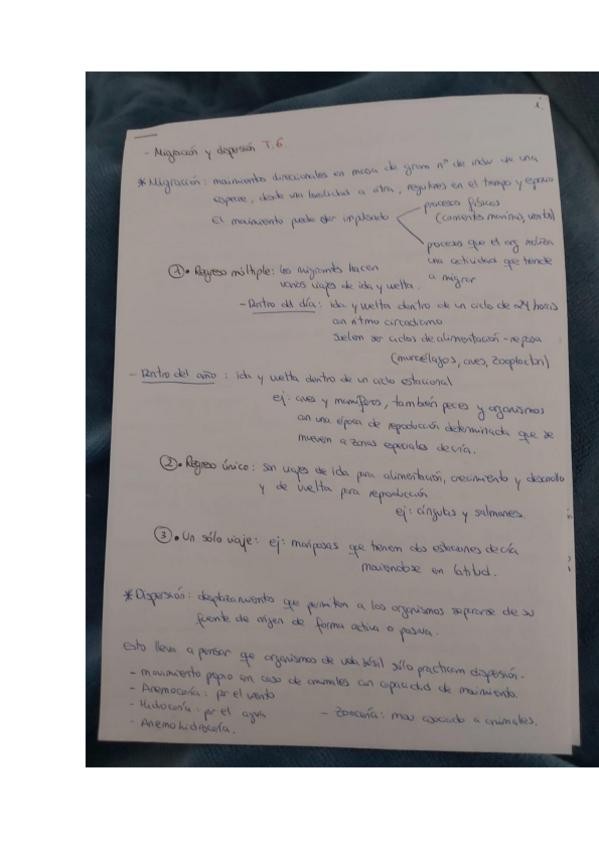 1.
- Migración y dispersión T.6
* Migración: movimientos direccionales en masa de gran nº de indiv de una
especie, desde una localidad a otra, regulares en el tiempo y espacio
El movimiento puede estar impulsado
procesos físicos
(corrientes marinas, viento)
procesos que el org realiza
una actividad que tiende
a migrar
① • Regreso múltiple: los migrantes hacen
varios viajes de ida y vuelta.
- Dentro del día: ida y vuelta dentro de un ciclo de 24 horas
con ritmo circadiano
suelen ser ciclos de alimentación - reposo
(murciélagos, aves, zooplacton)
- Dentro del año: ida y vuelta dentro de un ciclo estacional
ej: aves y mamíferos, también peces y organismos
con una época de reproducción determinada que se
mueven a zonas especiales de cría.
② • Regreso único: son viajes de ida para alimentación, crecimiento y desarrollo
y de vuelta para reproducción
ej: y salmones.
③ • Un sólo viaje: ej: mariposas que tienen dos estaciones de cría
moviendose en latitud.
* Dispersión: desplazamientos que permiten a los organismos separarse de su
fuente de origen de forma activa o pasiva.
Esto lleva a pensar que organismos de vida sésil sólo practican dispersión.
- movimiento propio en caso de animales con capacidad de movimiento.
- Anemocoria: por el viento
- Hidrocoria: por el agua
- Zoocoria: mov asociado a animales.
- Anemohidrocoria.